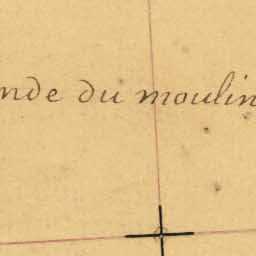 nde du moulin